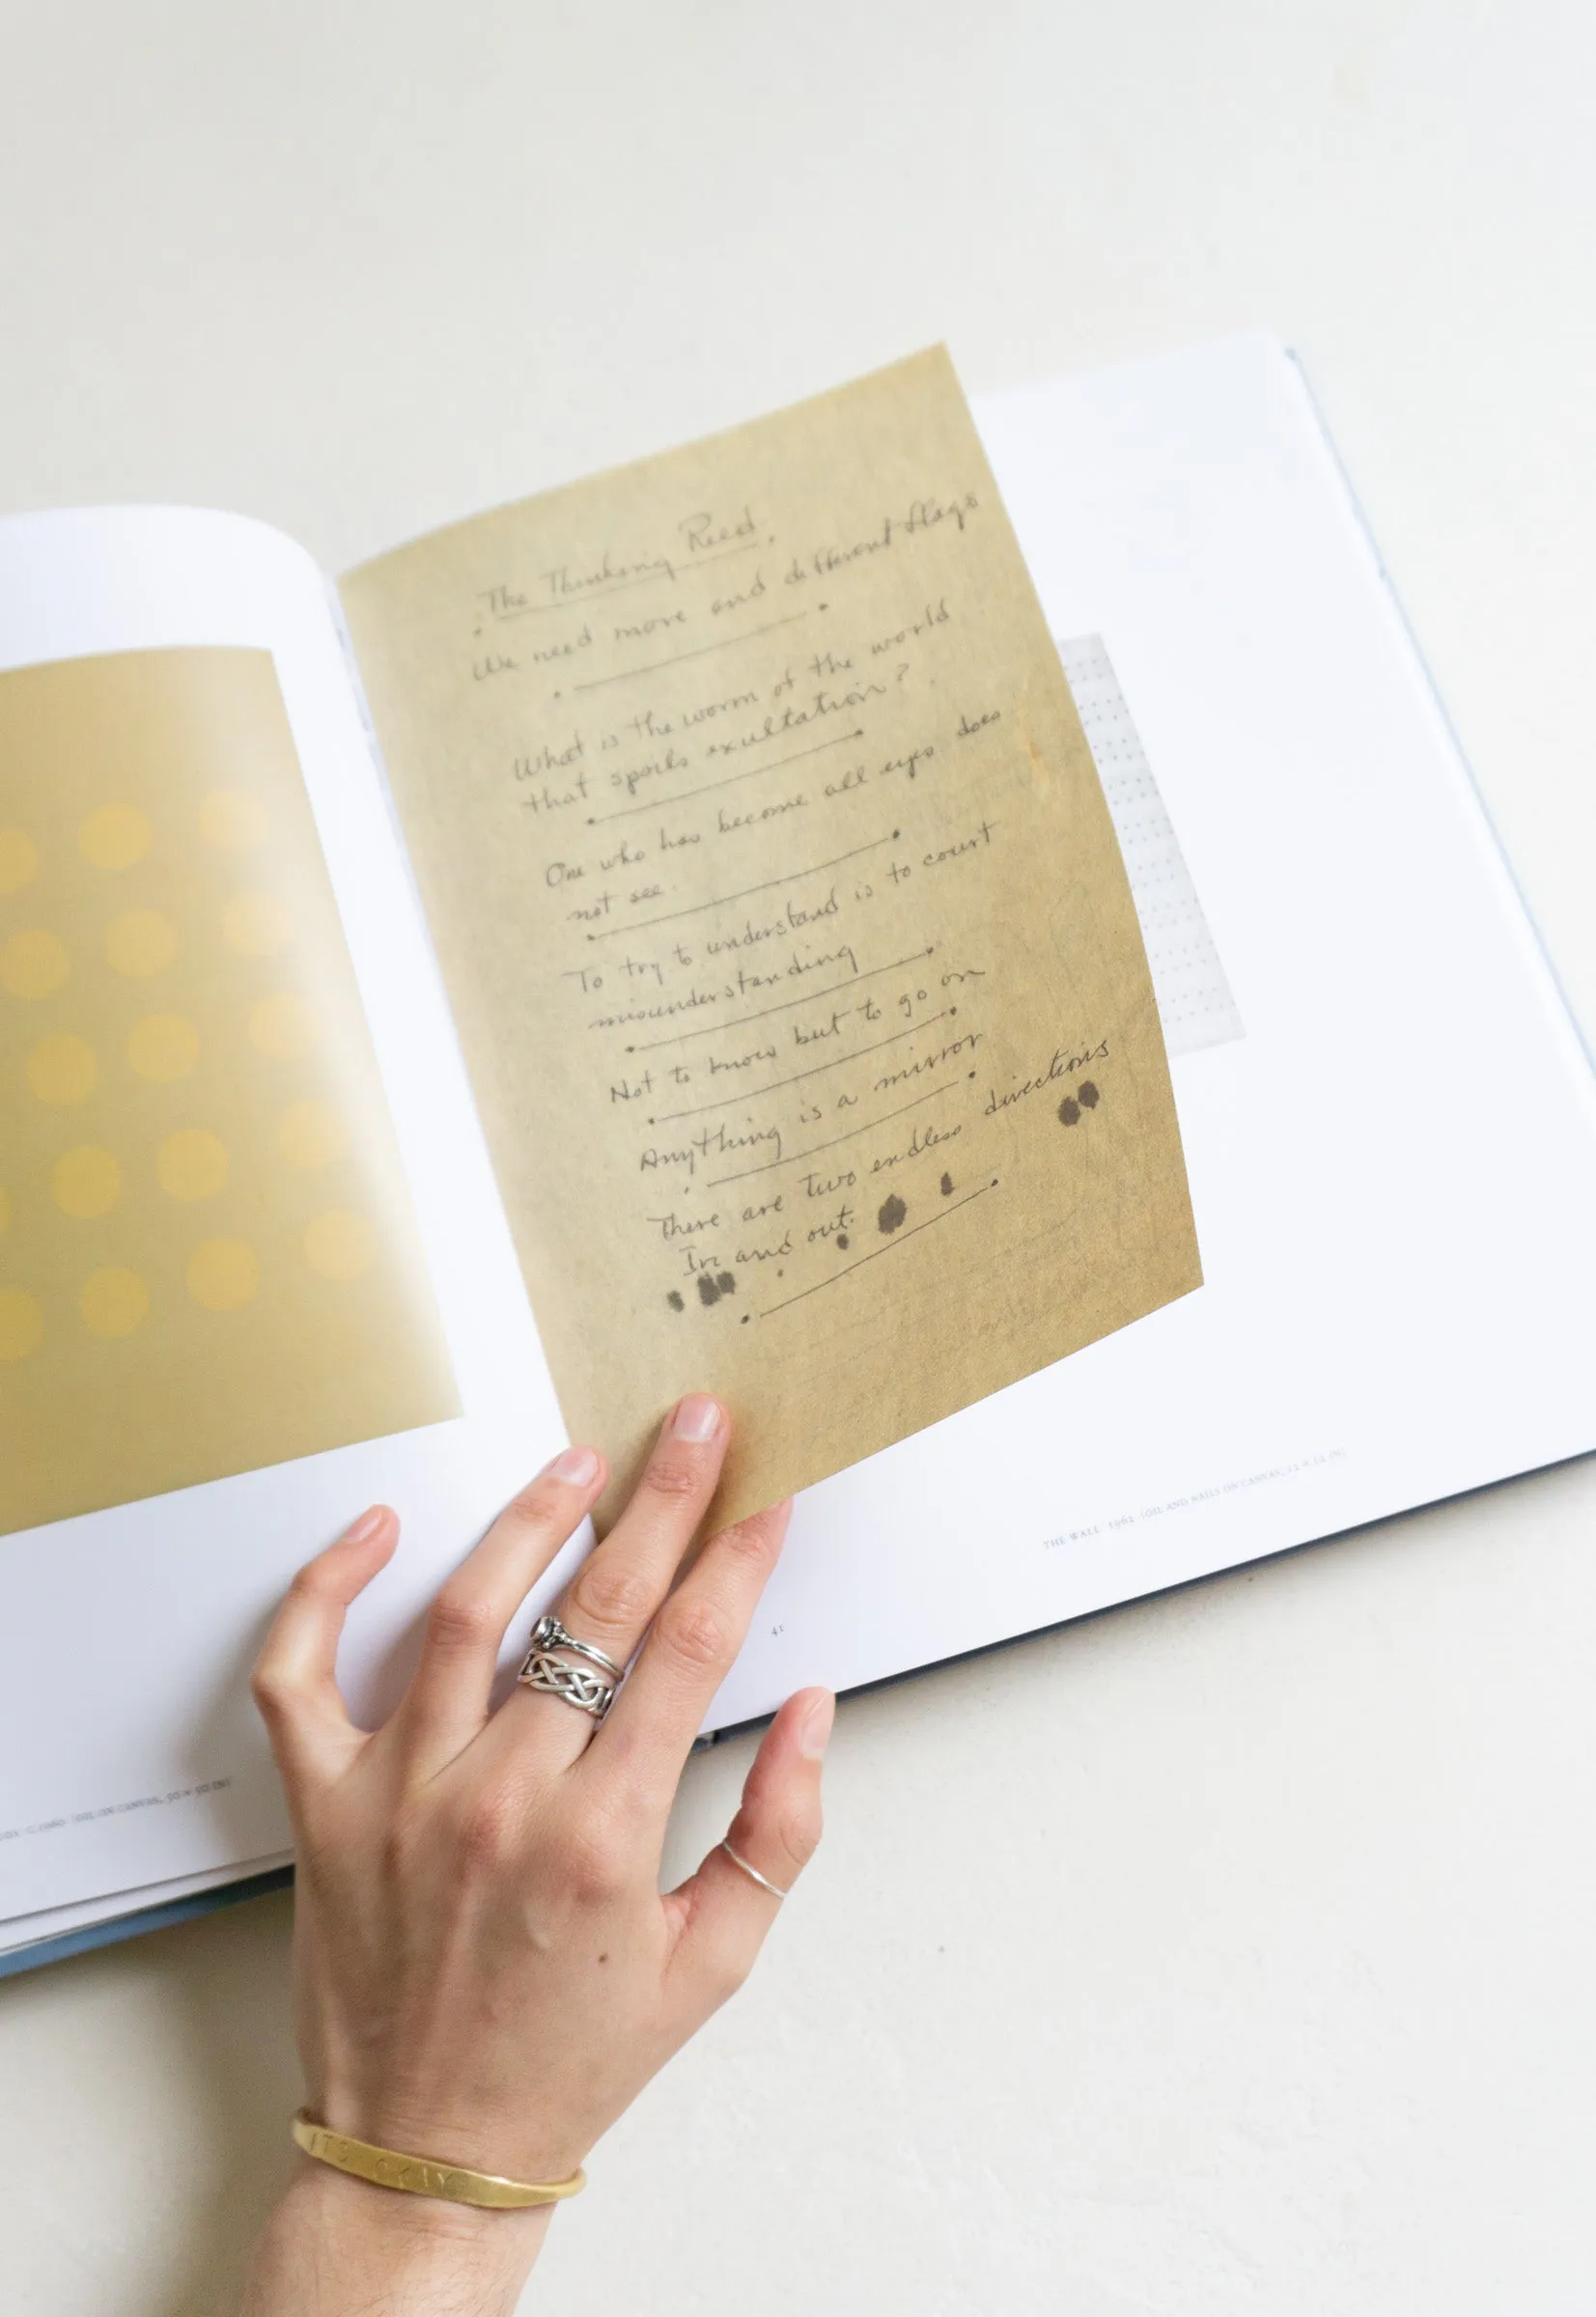 The Thinking Reed.
We need more and different flags
What is the worm of the world
that spoils exultation?
One who has become all eyes does
not see.
To try to understand is to court
misunderstanding
Not to know but to go on
Anything is a mirror
There are two endless directions
In and out.
THE WALL 1962 (OIL AND NAILS ON CANVAS, 12 × 12 IN)
41
1960 (OIL ON CANVAS, 50 × 50 IN)
ITS OKAY